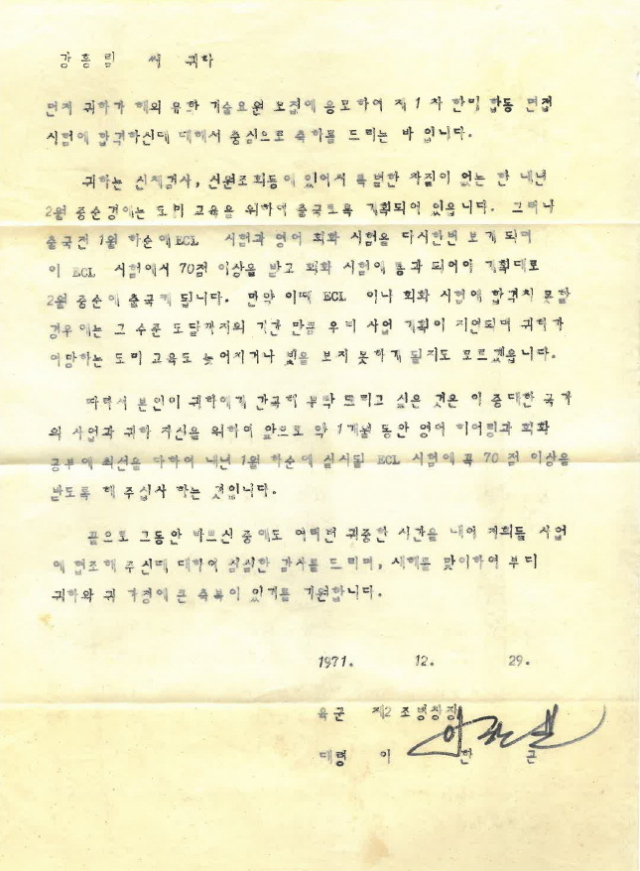 강흥림 씨 귀하
먼저 귀하가 해외 유학 기술요원 모집에 응모하여 제 1 차 한미 합동 면접
시험에 합격하신데 대해서 충심으로 축하를 드리는 바 입니다.
귀하는 신체검사, 신원조회등에 있어서 특별한 차질이 없는 한 내년
2월 중순경에는 도미 교육을 위하여 출국토록 계획되어 있읍니다. 그러나
출국전 1월 하순에 ECL 시험과 영어 회화 시험을 다시한번 보게 되며
이 ECL 시험에서 70점 이상을 받고 회화 시험에 통과 되어야 계획대로
2월 중순에 출국케 됩니다. 만약 이때 ECL 이나 회화 시험에 합격치 못할
경우에는 그 수준 도달까지의 기간 만큼 우리 사업 계획이 지연되며 귀하가
여망하는 도미 교육도 늦어지거나 빛을 보지 못하게 될지도 모르겠읍니다.
따라서 본인이 귀하에게 간곡히 부탁 드리고 싶은 것은 이 중대한 국가
의 사업과 귀하 자신을 위하여 앞으로 약 1개월 동안 영어 히어링과 회화
공부에 최선을 다하여 내년 1월 하순에 실시될 ECL 시험에 꼭 70 점 이상을
받도록 해 주십사 하는 것입니다.
끝으로 그동안 바쁘신 중에도 여러번 귀중한 시간을 내어 저희들 사업
에 협조해 주신데 대하여 심심한 감사를 드리며, 새해를 맞이하여 부디
귀하와 귀 가정에 큰 축복이 있기를 기원합니다.
1971. 12. 29.
육군 제2 조병창장
대령 이 한